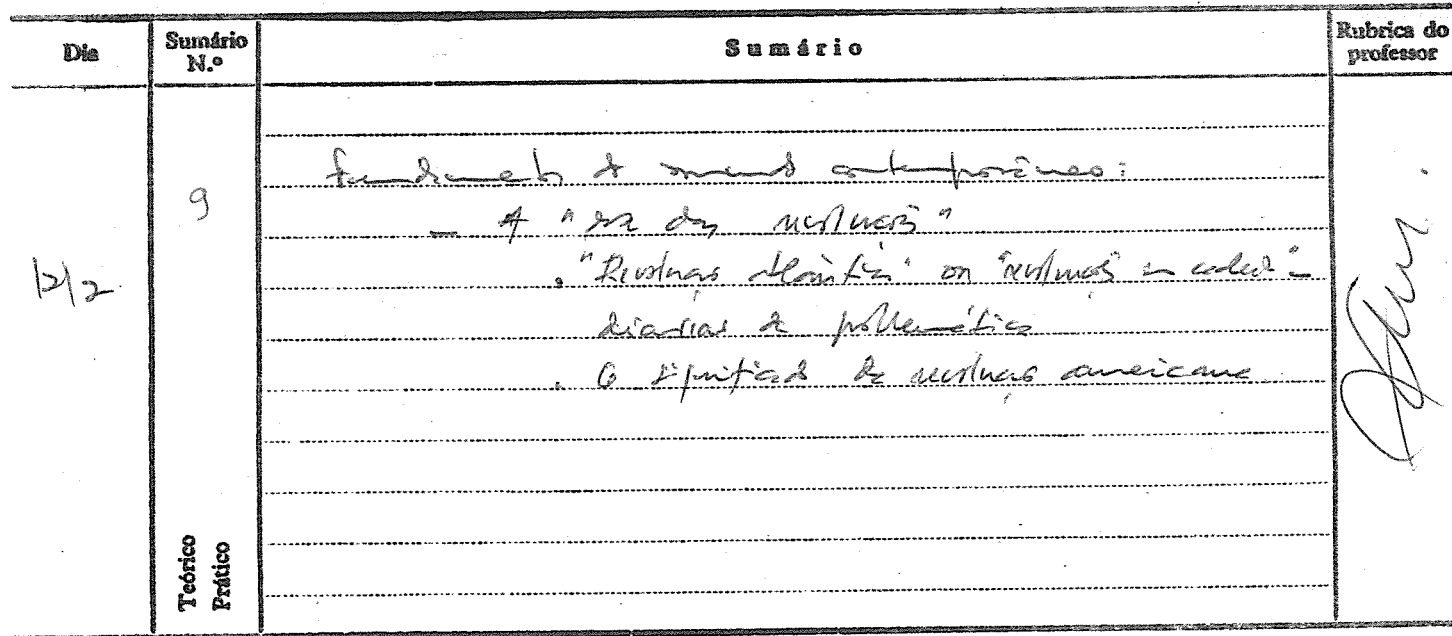 Dia
Sumário N.º
Sumário
Rubrica do professor
12/2
9
Fundamentos do mundo contemporâneo:
- A "era das revoluções"
. "Revoluções atlânticas" ou "revoluções em cadeia" -
da problemática
. O significado da revolução americana
Teórico
Prático